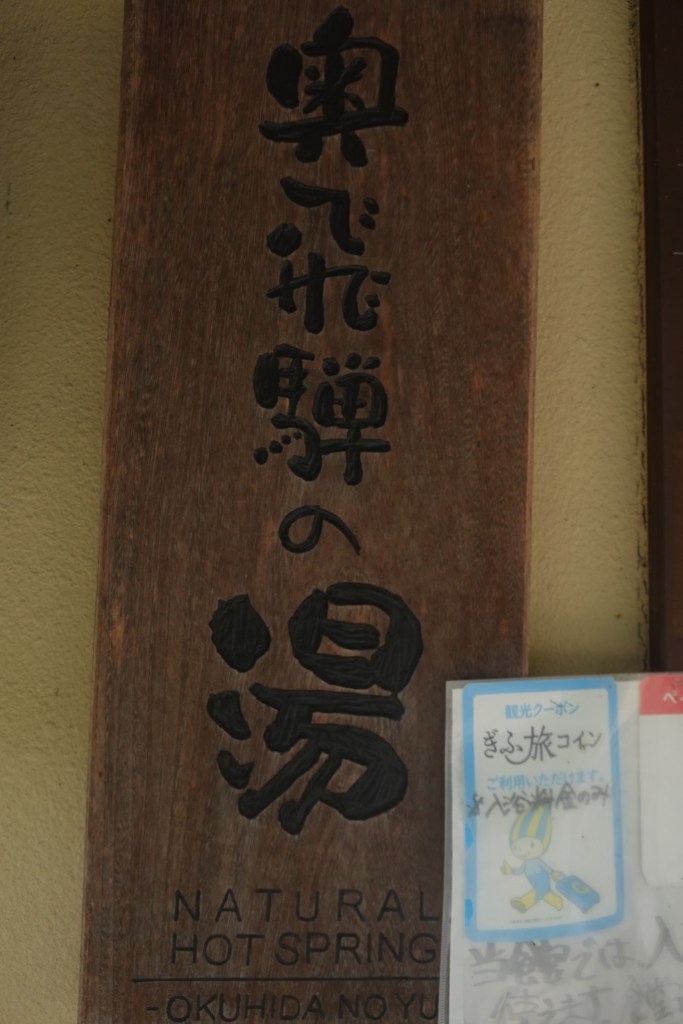 奥飛騨の湯
NATURAL
HOT SPRING
-OKUHIDA NO YU
観光クーポン
ぎふ旅コイン
ご利用いただけます。
※入浴料金のみ
ペ
当館では入